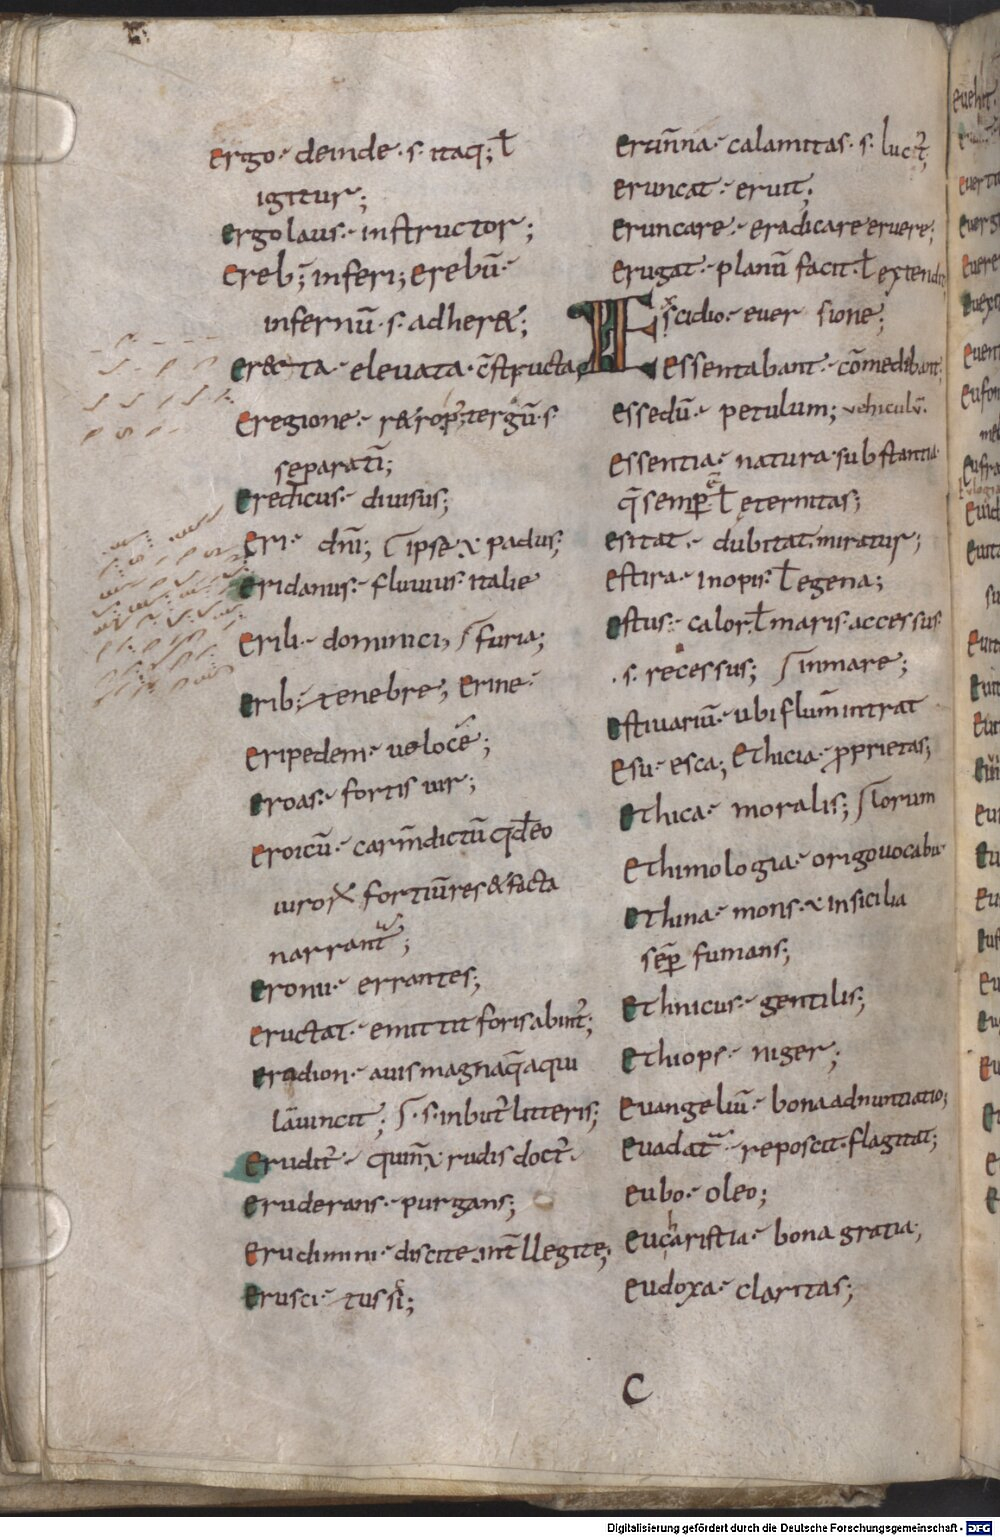 ergo· deinde· s· itaq; ł
igitur;
ergolaus· instructor;
ereb; inferi; erebū·
infernū· s· adher&;
er&ta· elevata· c̄structa
eregione· r& rop; tergū· s
separatī;
eredicus· divisus;
eri· dn̄i; ipse & padus;
eridanus· fluvius italie
erili· dominici, furia;
erib; tenebre; erine·
eripedem· velocē;
eroas· fortis vir;
eroicū· carm̄ dictū qd eo
virorꝝ fortiū res & facta
narrant̄;
eronii· errantes;
eructat· emittit foris ab int̄;
erodion· avis magna q̄ aqui
lā vincit; s· in but litteris;
erudit̄· rudis doct̄·
eruderans· purgans;
erudimini· discite intllegite;
erusci· tussi;
erūnna· calamitas· s· luct̄;
eruncat· eruit;
eruncare· eradicare eruere;
erugat· planū facit· ł extendit
Excidio· ever sione;
essentabant· cōmedebant
essedū· petulum; vehiculū·
essentia· natura· substantia
q̄ semp̄ ē ł eternitas;
esitat· dubitat· miratur;
estira· inopis· ł egena;
estus· calor· ł maris accessus
· s· recessus; in mare;
estivariū· ubi flum̄ intrat
esu· esca; Ethicia· ꝓprietas;
ethica· moralis; lorum
ethimologia· origo vocabu
ethina· mons· & in sicilia
sēp fumans;
ethnicus· gentilis;
ethiops· niger;
euangeliū· bona adnuntiatio;
euadat̄· reposcit· flagitat;
eubo· oleo;
eucharistia· bona gratia;
eudoxa· claritas;
C
Digitalisierung gefördert durch die Deutsche Forschungsgemeinschaft - DFG